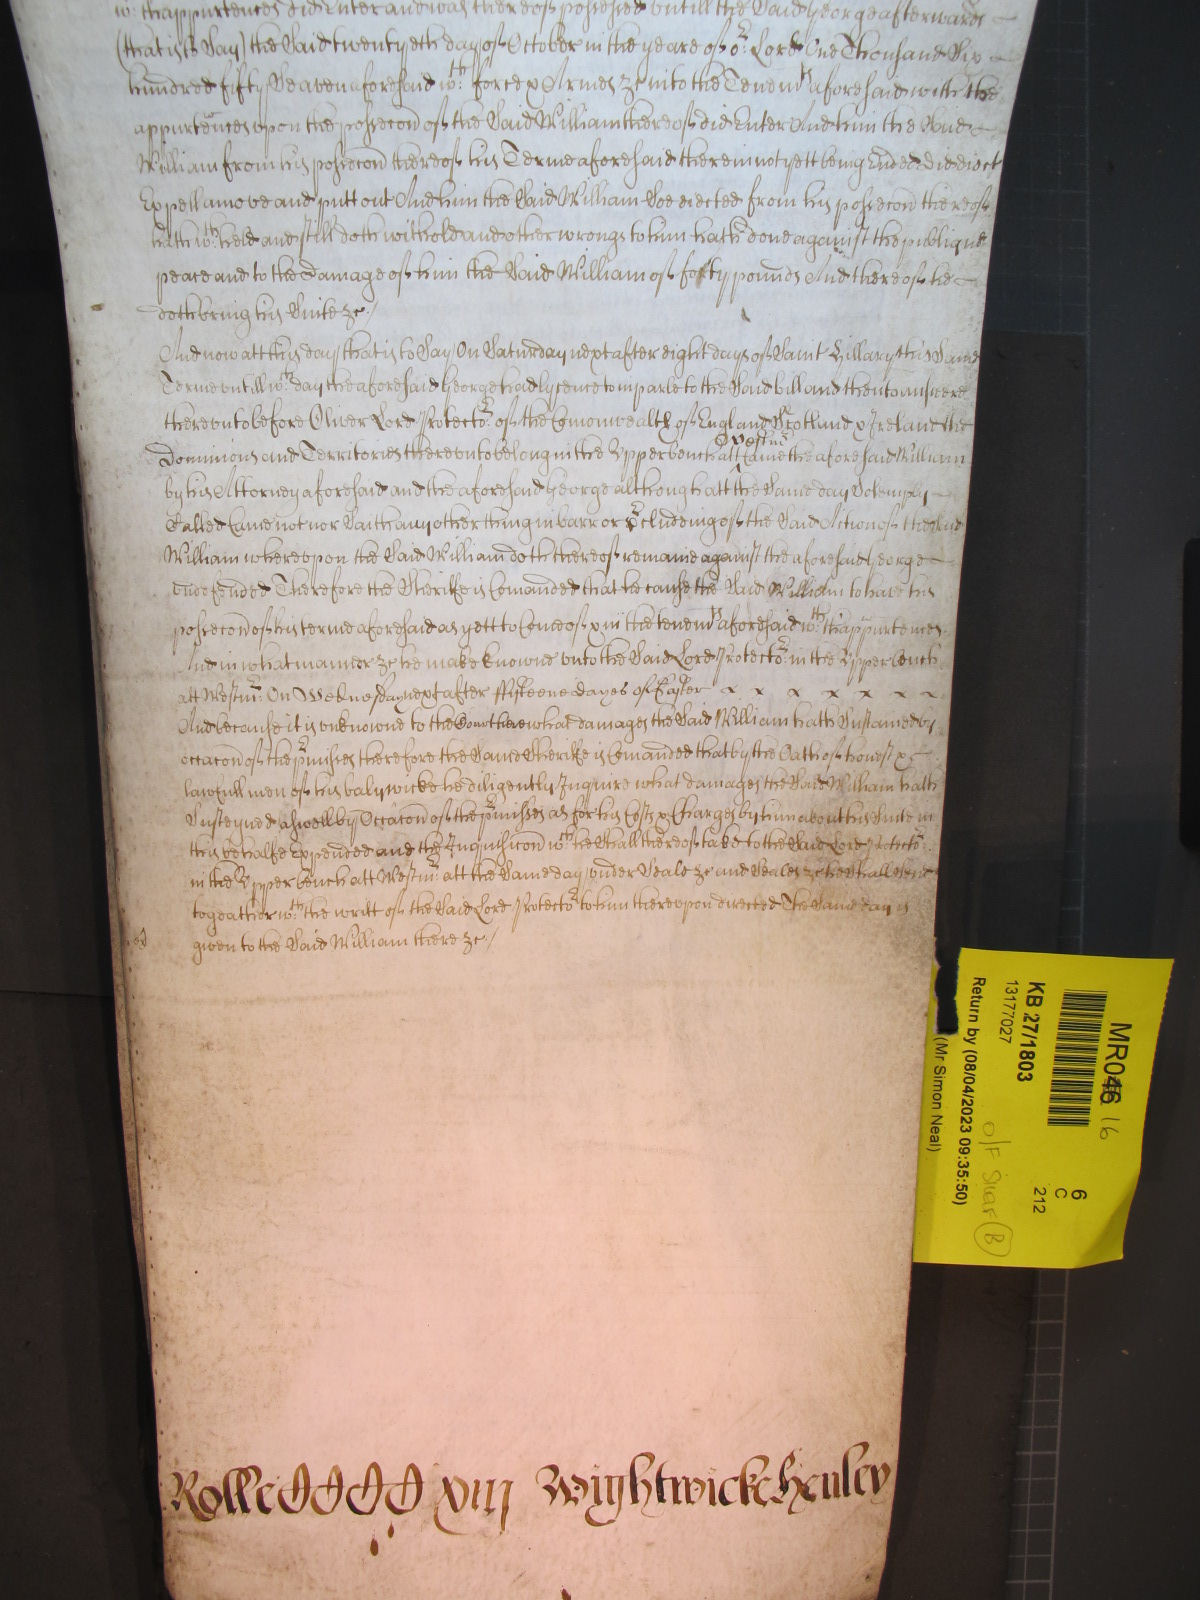 wth thappurtences did Enter and was thereof possessed untill the said George afterwards
(that is to say) the said twentyeth day of October in the yeare of or Lord One Thousand Six
hundred fifty Seaven aforesaid wth force & Armes &c into the Tenemts aforesaid with the
appurtences upon the possecon of the said William thereof did Enter And him the said
William from his possecon thereof his Terme aforesaid therein not yett being Ended did eiect
Expell amove and putt out And him the said William soe eiected from his possecon thereof
hath wthheld and still doth withold and other wrongs to him hath done against the publique
peace and to the damage of him the said William of forty pounds And thereof he
doth bring his suite &c /
And now att this day that is to say On Saturday next after eight days of Saint Hillary this same
Terme untill wch day the aforesaid George had lycence to imparle to the said bill and then to answere
thereunto before Oliver Lord Protector of the Comonwealth of England Scotland & Ireland the
Dominions and Territories thereunto belonging in the Upper bench att Westmr Came the aforesaid William
by his Attorney aforesaid and the aforesaid George although att the same day Solemply
Called Came not nor saith any other thing in barr or pcludeing of the said Action of the said
William whereupon the said William doth thereof remaine against the aforesaid George
undefended Therefore the Sheriffe is Comanded that he cause the said William to have his
possecon of his terme aforesaid as yett to Come of & in the tenemts aforesaid wth thappurtences
And in what manner &c he make knowne unto the said Lord Protector in the Upper bench
att Westmr On Wednesday next after fifteene dayes of Easter x x x x x x x
And because it is unknowne to the Court here what damages the said William hath Sustained by
occacon of the pmisses therefore the same Sheriffe is Comanded that by the Oath of honest &
lawfull men of his balywicke he diligently Inquire what damages the said William hath
Susteyned aswell by Occacon of the pmisses as for his Costs & Charges by him about his Suite in
this behalfe Expended and the Inquisicon wch he shall thereof take to the said Lord Protector
in the Upper bench att Westmr att the same day under Seale &c and Seales &c he shall send
togeather wth the writt of the said Lord Protector to him thereupon directed The same day is
given to the said William there &c /
Rolle CCCC xiii Wightwicke Henley
MR046 16
6
C
212
KB 27/1803
13177027
Return by (08/04/2023 09:35:50)
(Mr Simon Neal)
O/F Shar B